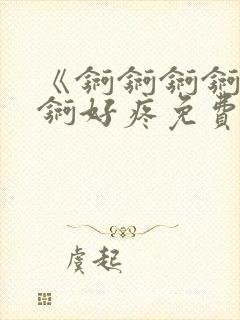 《锕锕锕锕
锕好疼免費
虞起